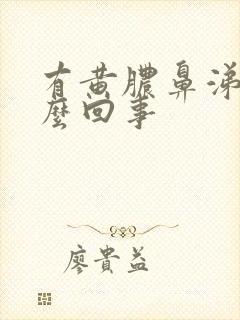 有黄脓鼻涕
麼回事
廖貴益